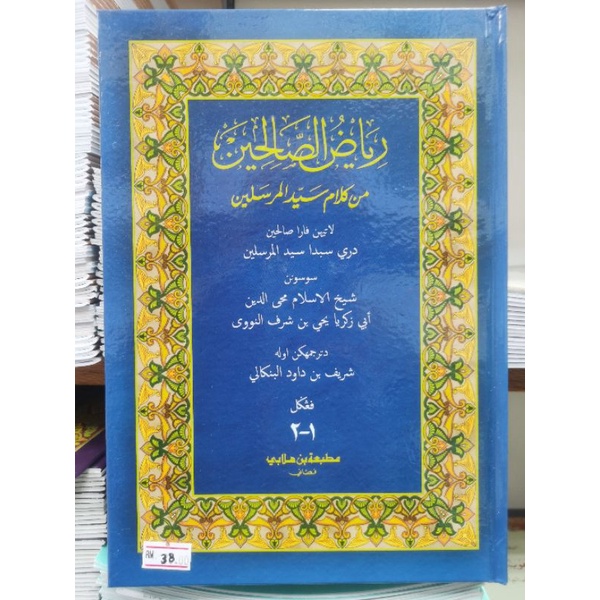 رياضُ الصَّالحِين
من كلام سيّد المرسلين
لاتيهن فارا صالحين
دري سبدا سيد المرسلين
سوسونن
شيخ الاسلام محى الدين
أبي زكريا يحيى بن شرف النووى
دترجمهكن اوله
شريف بن داود البنكالي
ڤڠكل
١-٢
مطبعة بن هلابي
فطاني
RM 38.00